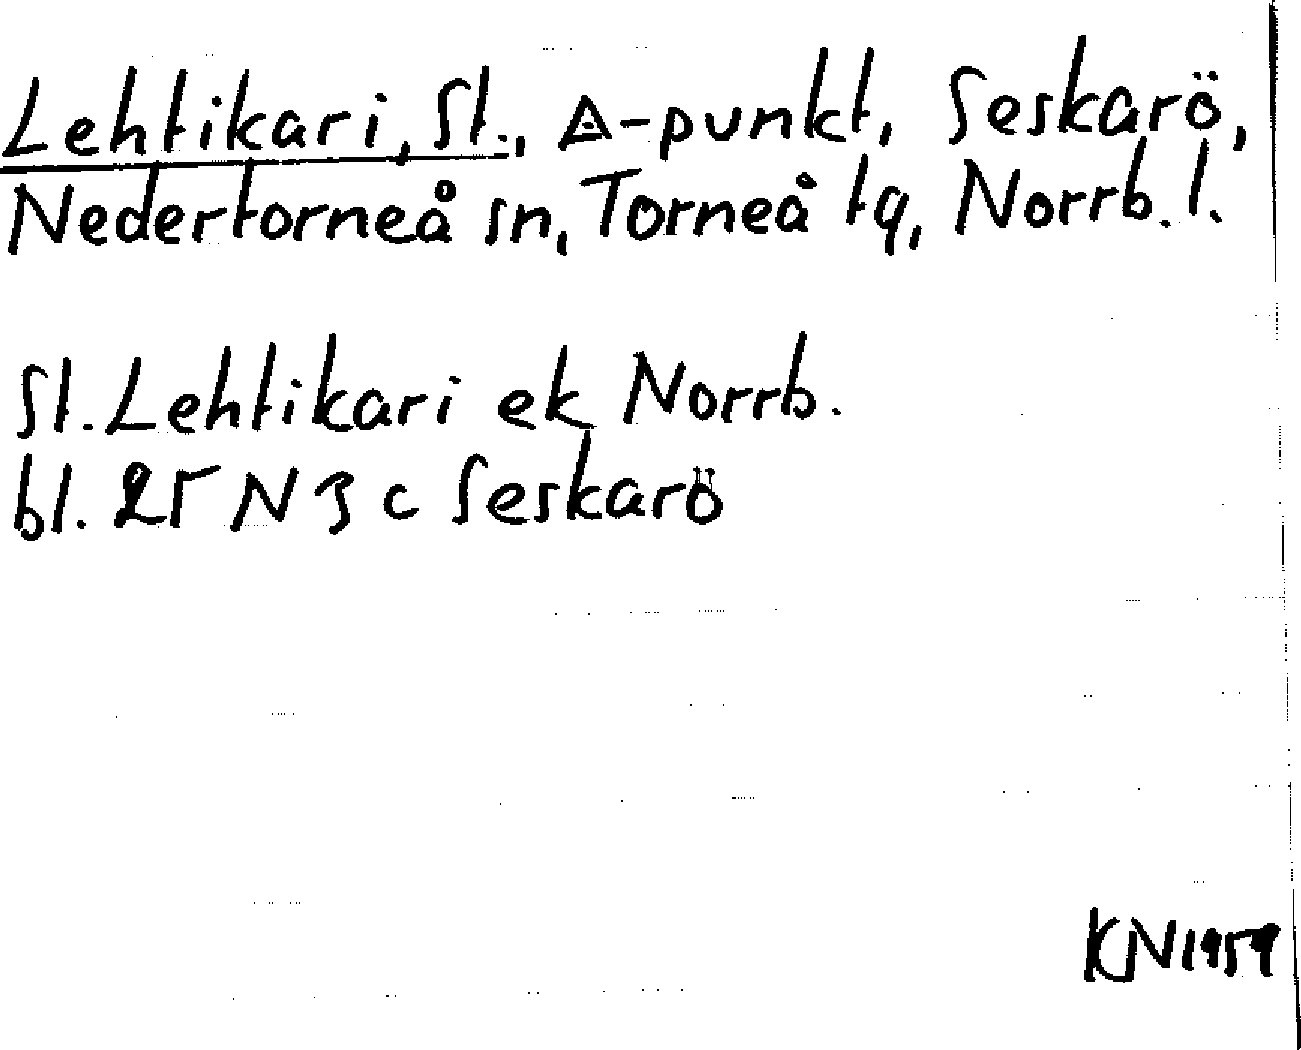 Lehtikari, St., △-punkt, Seskarö,
Nedertorneå sn, Torneå tg, Norrb. l.
St. Lehtikari ek Norrb.
bl. 25 N 3 c Seskarö
KN 1959